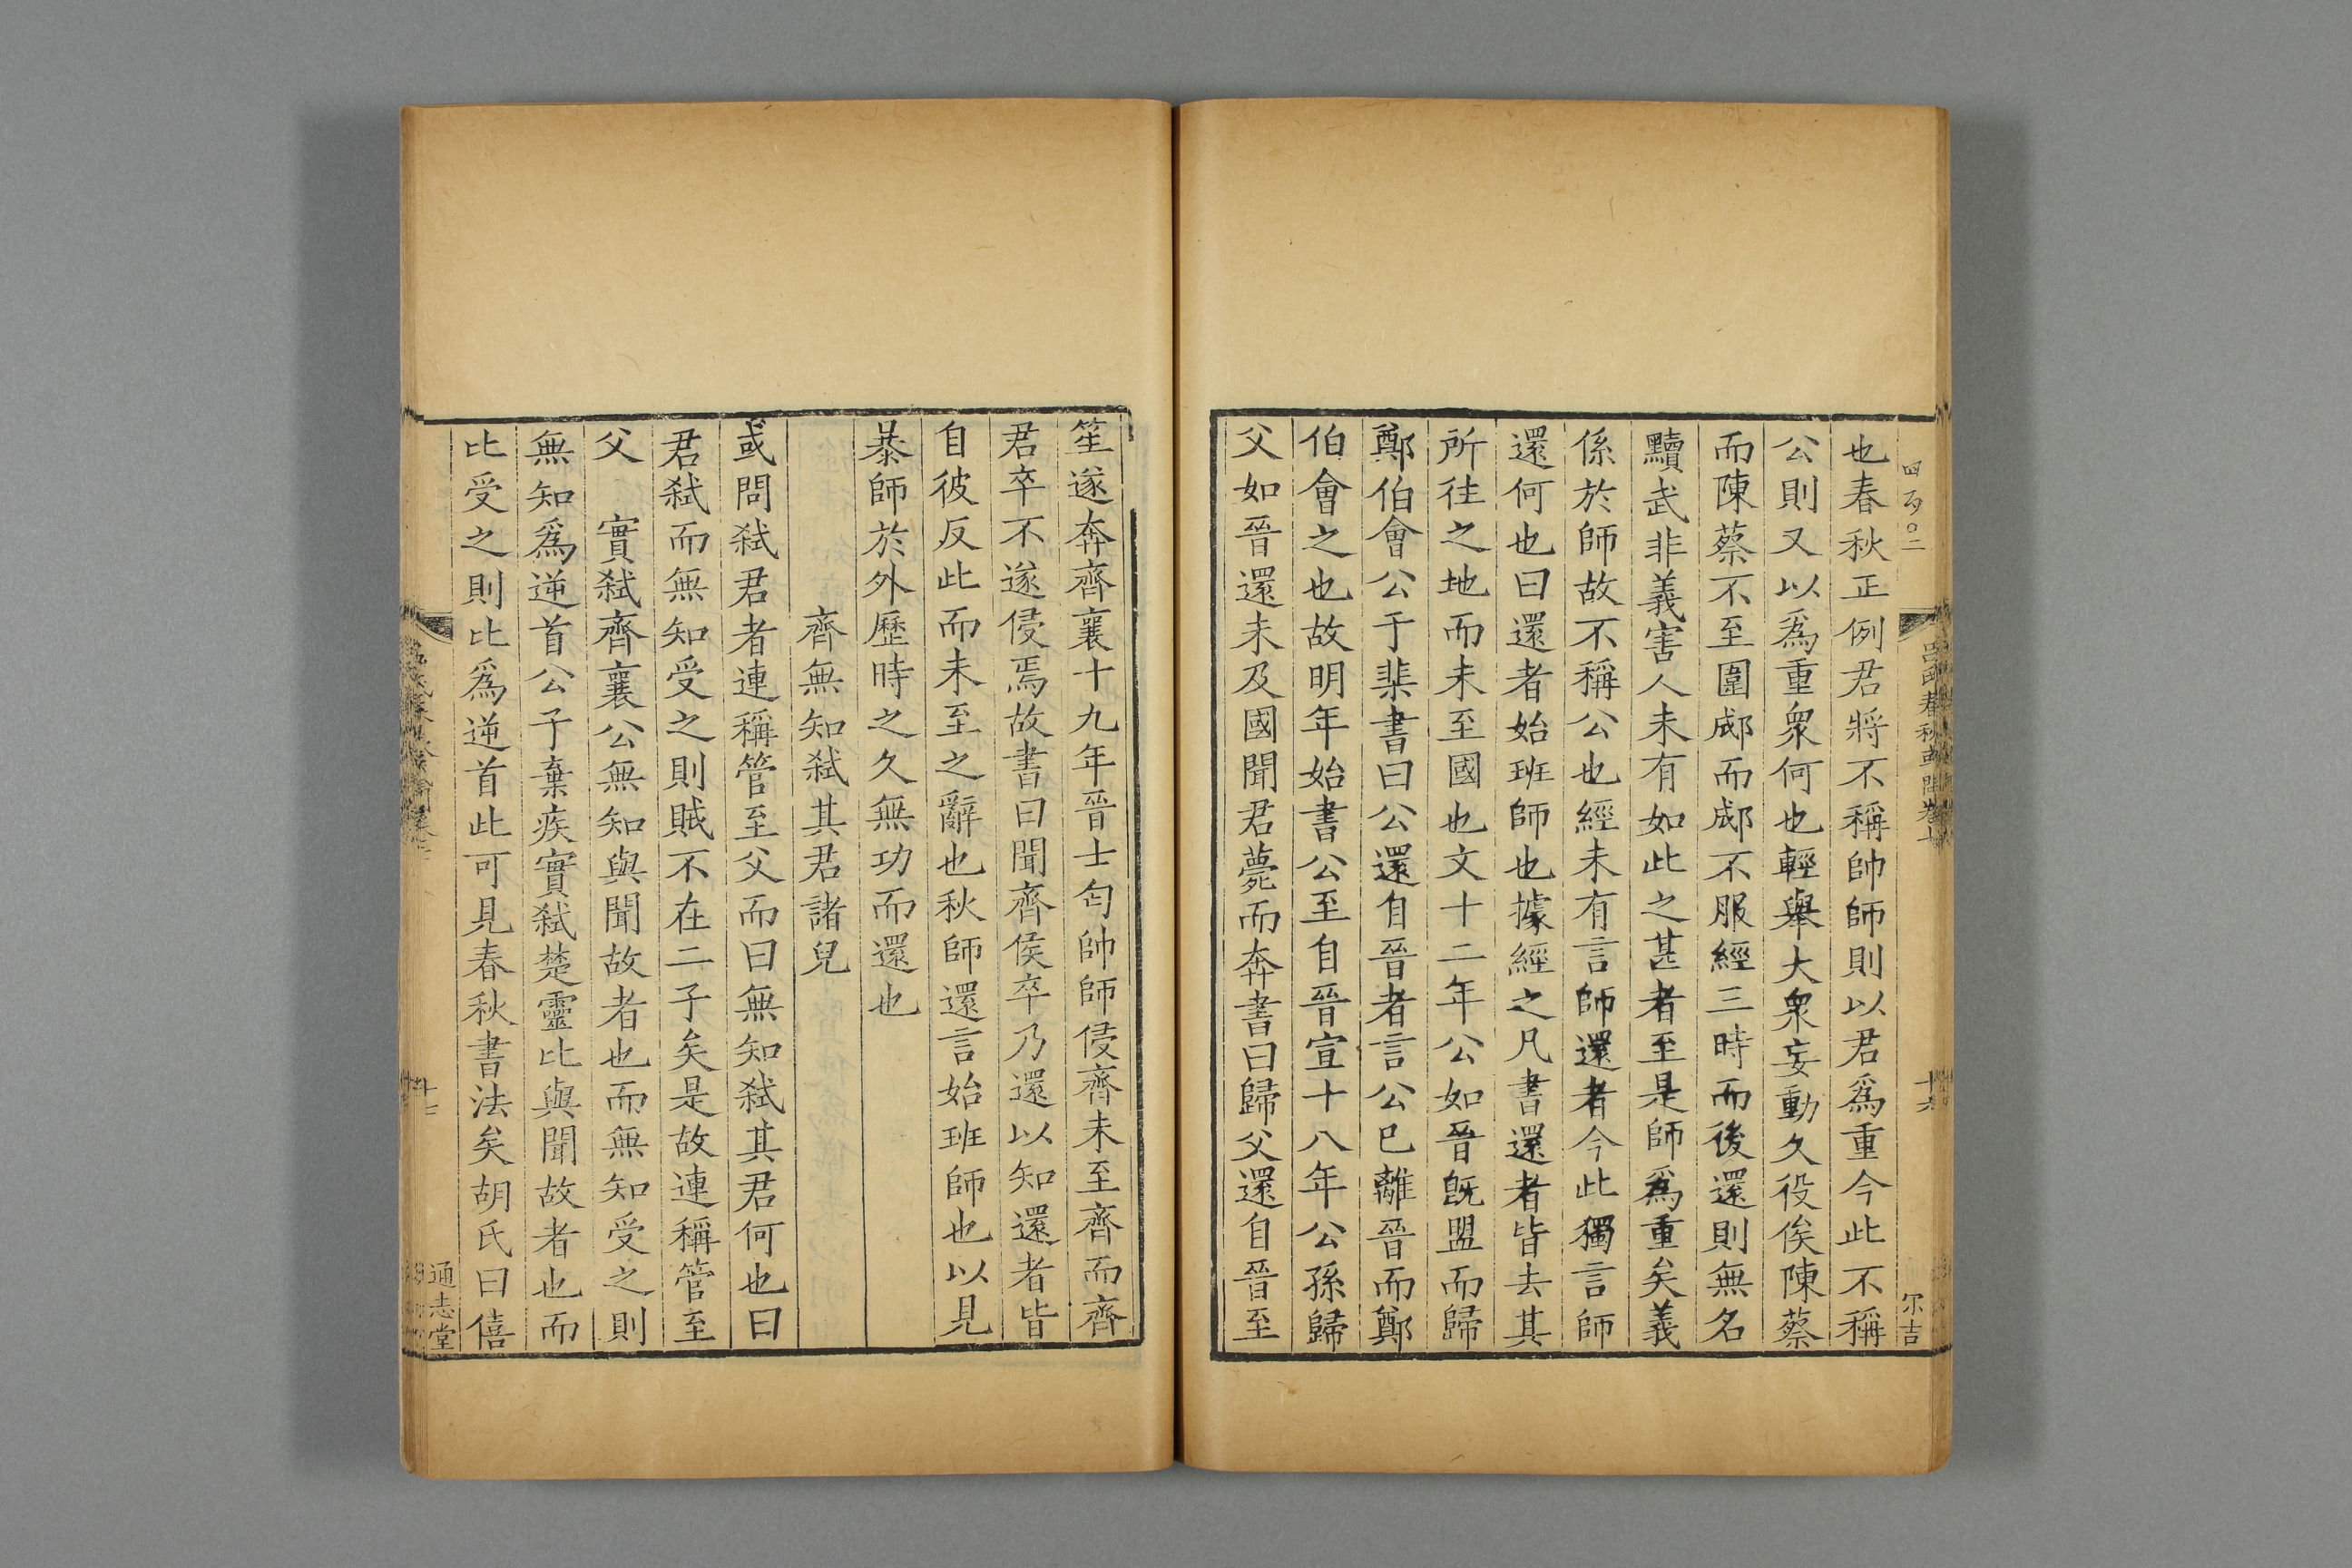 也春秋正例君將不稱帥師則以君爲重今此不稱
公則又以爲重衆何也輕舉大衆妄動久役俟陳蔡
而陳蔡不至圍郕而郕不服經三時而後還則無名
黷武非義害人未有如此之甚者至是師爲重矣義
係於師故不稱公也經未有言師還者今此獨言師
還何也曰還者始班師也據經之凡書還者皆去其
所往之地而未至國也文十二年公如晉旣盟而歸
鄭伯會公于棐書曰公還自晉者言公已離晉而鄭
伯會之也故明年始書公至自晉宣十八年公孫歸
父如晉還未及國聞君薨而奔書曰歸父還自晉至
笙遂奔齊襄十九年晉士匄帥師侵齊未至齊而齊
君卒不遂侵焉故書曰聞齊侯卒乃還以知還者皆
自彼反此而未至之辭也秋師還言始班師也以見
暴師於外歷時之久無功而還也
齊無知弑其君諸兒
或問弑君者連稱管至父而曰無知弑其君何也曰
君弑而無知受之則賊不在二子矣是故連稱管至
父 實弑齊襄公無知與聞故者也而無知受之則
無知爲逆首公子棄疾實弑楚靈比與聞故者也而
比受之則比爲逆首此可見春秋書法矣胡氏曰僖
四百〇二
呂氏春秋或問卷七
十六
尔吉
十七
通志堂